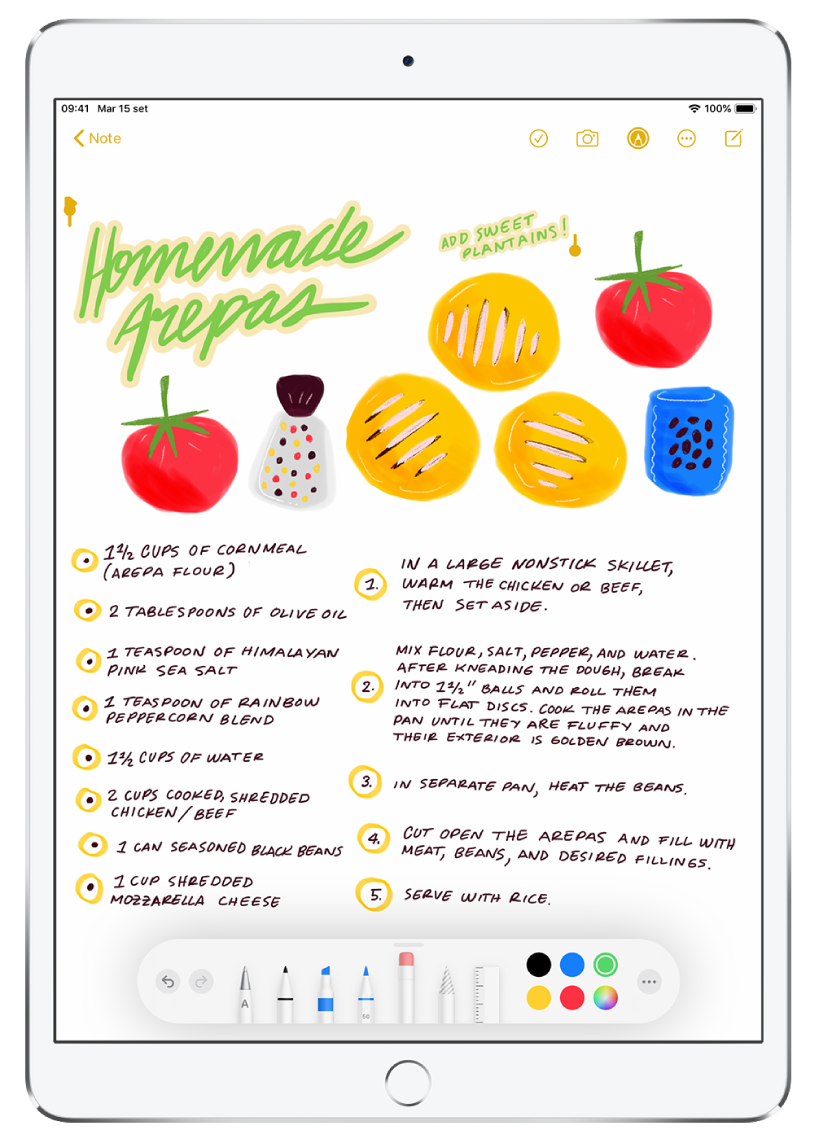 09:41 Mar 15 set
100%
Note
Homemade
Arepas
ADD SWEET
PLANTAINS!
1 1/2 CUPS OF CORNMEAL
(AREPA FLOUR)
2 TABLESPOONS OF OLIVE OIL
1 TEASPOON OF HIMALAYAN
PINK SEA SALT
1 TEASPOON OF RAINBOW
PEPPERCORN BLEND
1 1/2 CUPS OF WATER
2 CUPS COOKED, SHREDDED
CHICKEN/BEEF
1 CAN SEASONED BLACK BEANS
1 CUP SHREDDED
MOZZARELLA CHEESE
1. IN A LARGE NONSTICK SKILLET,
WARM THE CHICKEN OR BEEF,
THEN SET ASIDE.
2. MIX FLOUR, SALT, PEPPER, AND WATER.
AFTER KNEADING THE DOUGH, BREAK
INTO 1 1/2" BALLS AND ROLL THEM
INTO FLAT DISCS. COOK THE AREPAS IN THE
PAN UNTIL THEY ARE FLUFFY AND
THEIR EXTERIOR IS GOLDEN BROWN.
3. IN SEPARATE PAN, HEAT THE BEANS.
4. CUT OPEN THE AREPAS AND FILL WITH
MEAT, BEANS, AND DESIRED FILLINGS.
5. SERVE WITH RICE.
A
50